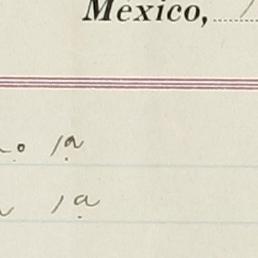 México,
1a
1a